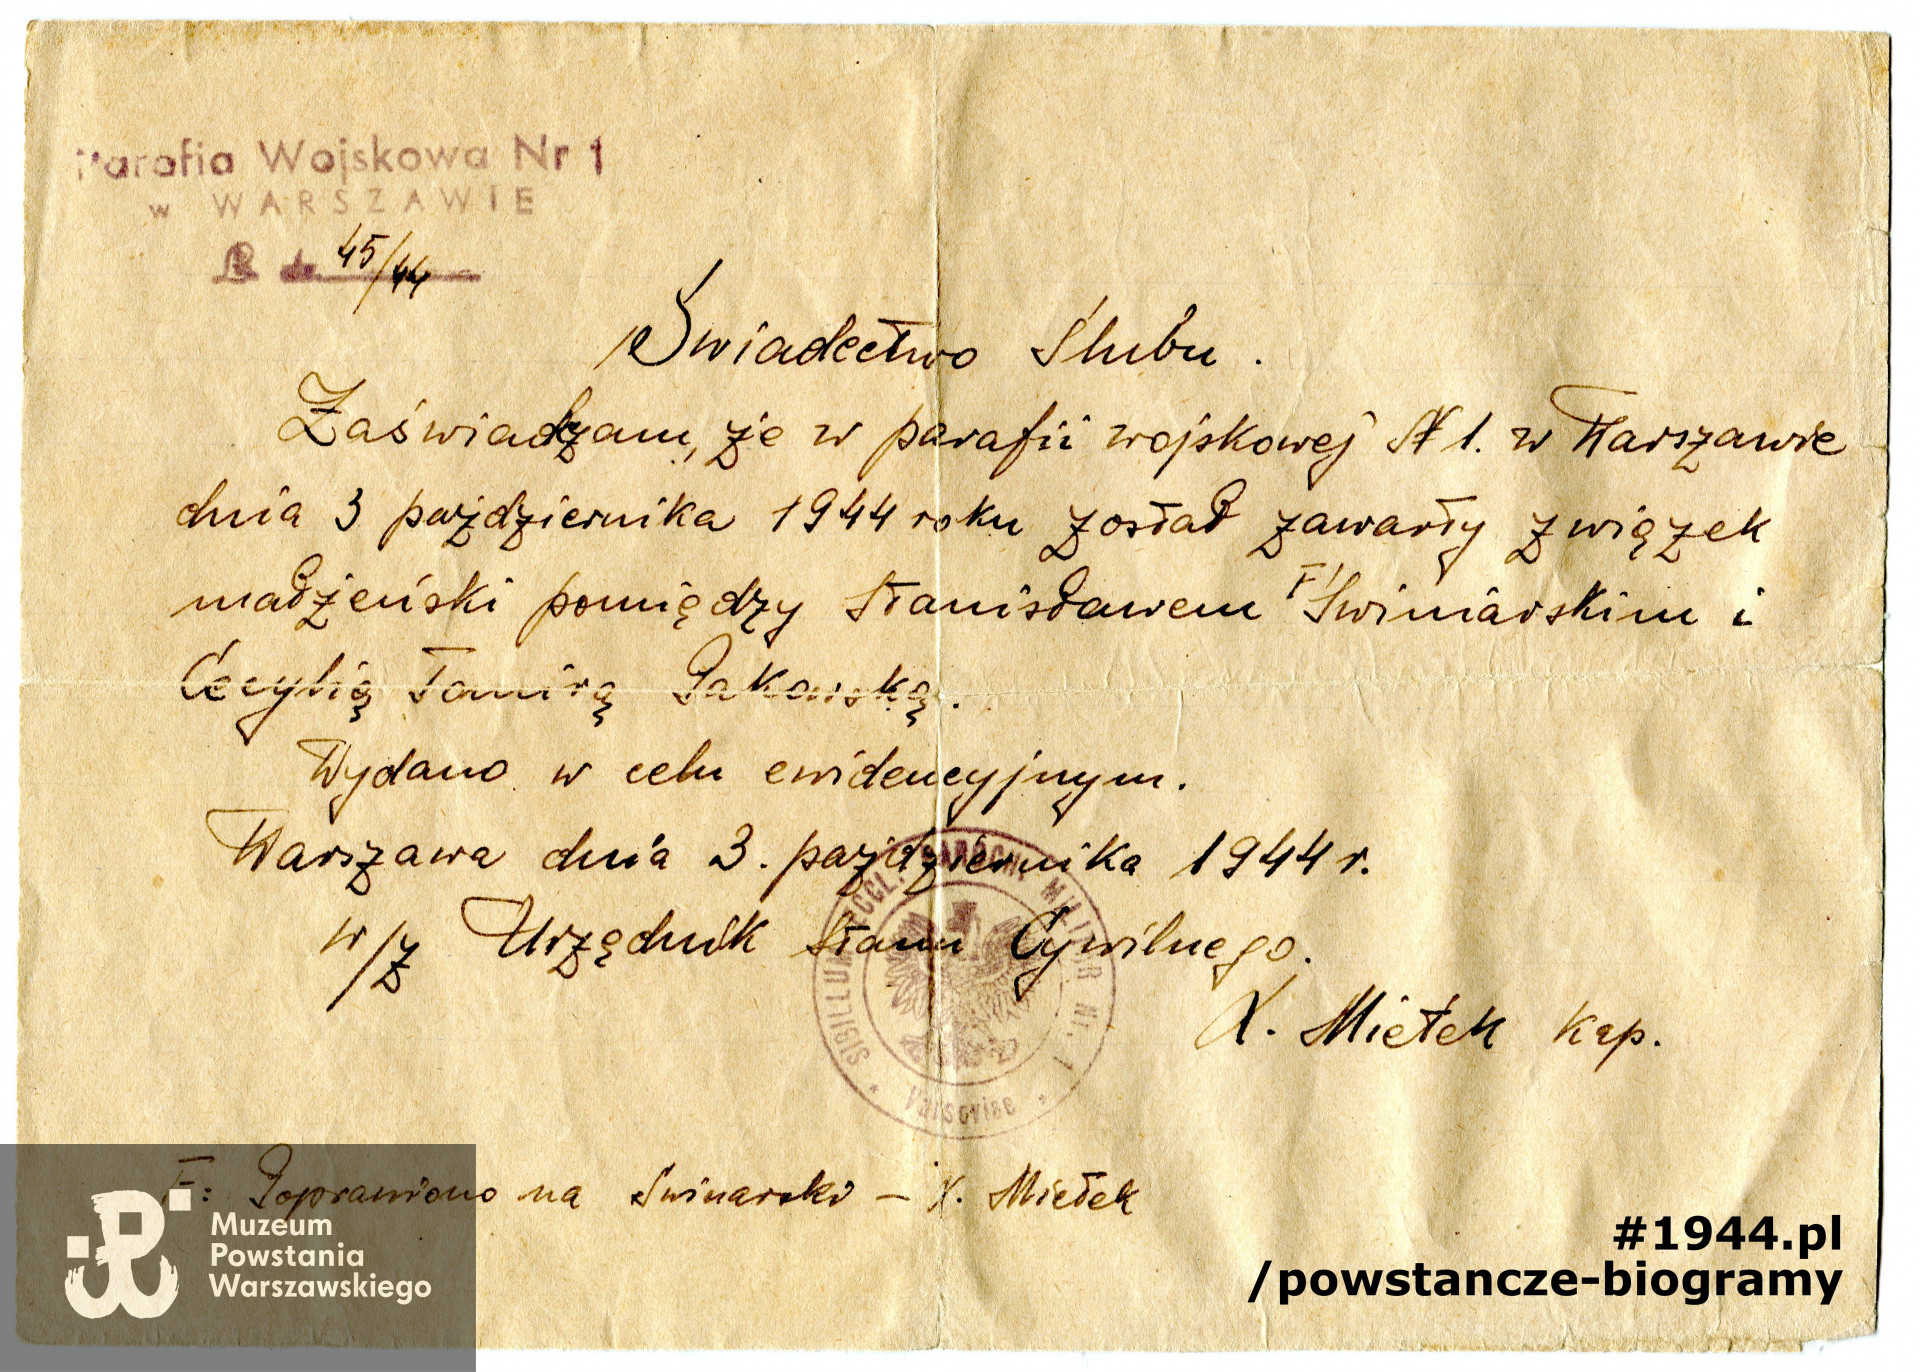 Parafia Wojskowa Nr 1
w WARSZAWIE
L. dz. 45/44
Świadectwo Ślubu.
Zaświadczam, że w parafii wojskowej N 1. w Warszawie
dnia 3 października 1944 roku został zawarły związek
małżeński pomiędzy Stanisławem F Świniarskim i
Cecylią Tamirą Pakowską.
Wydano w celu ewidencyjnym.
Warszawa dnia 3. października 1944 r.
w/z Urzędnik Stanu Cywilnego.
X. Mietek kap.
* SIGILLUM ECCL. PAROCH. MILITAR. Nr. 1 *
Varsoviae
F: Poprawiono na Swinarski – X. Mietek
Muzeum
Powstania
Warszawskiego
#1944.pl
/powstancze-biogramy